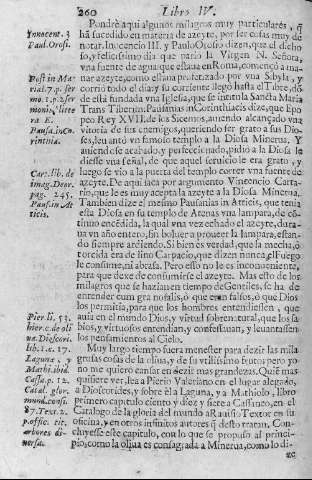 260 Libro IV.
Pondré aqui algunos milagros muy particulares, q̃
Innocent. 3 ha sucedido en materia de azeyte, por ser cosas muy de
Paul. Orosi. notar. Inocencio III. y Paulo Orosio dizen, que el dicho
so, y felicissimo dia que pariò la Virgen N. Señora,
vna fuente de agua que estaua en Roma, començò a ma
Post in Ma nar azeyte, como estaua profetizado por vna Sibyla, y
rial. 7. p. ser corriò todo el dia y su corriente llegò hasta el Tibre, dõ
mo. 1. p. 2. ser de està fundada vna Iglesia, que se intitula Santa Maria
monis, litte Trans Tiberim. Pausanias in Corinthiacis dize, que Epo
ra E. peo Rey XVII. de los Sicemos, auiendo alcançado vna
Pausa. in Co vitoria de sus enemigos, queriendo ser grato a sus Dio-
rintnia. ses, leuantò vn famoso templo a la Diosa Minerua, Y
auiendose acabado, y perfecionado, pidio a la Diosa le
diesse vna señal, de que aquel seruicio le era grato, y
Car. lib. de luego se vio a la puerta del templo correr vna fuente de
imag. Deor. azeyte. De aqui saca por argumento Vincencio Carta-
pag. 245. rio, que le es muy acepta la azeyte a la Diosa Minerua,
Pausa. in At Tambien dize el mesmo Pausanias in Atticis, que tenia
ticis. esta Diosa en su templo de Atenas vna lampara, de cõ-
tinuo encẽdida, la qual vna vez echado el azeyte, dura-
ua vn año entero, sin boluer a proueer la lampara, estan-
do siempre ardiendo. Si bien es verdad, que la mecha, ò
torcida era de lino Carpacio, que dizen nunca el fuego
le consume, ni abrasa. Pero esto no le es inconueniente,
para que dexe de consumirse el azeyte. Mas esto de los
milagros que se hazian en tiempo de Gentiles, se ha de
entender cum gra nosalis, ò que eran falsos, ò que Dios
los permitia, para que los hombres entendiessen, que
Pier li. 53. auia en el mundo Dios, y virtud sobrenatural, que los sa
hier. c. de oli bios, y virtuosos entendian, y confessauan, y leuantassen
ua. Dioscori. los pensamientos al Cielo.
lib. 1. c. 17. Muy largo tiempo fuera menester para dezir las mila
Laguna, y grosas cosas de la oliua, y de su vtilissimo fruto: pero yo
Mathi. ibid. no me quiero cansar en dezir mas grandezas. Quiẽ mas
Cassa. p. 12. quisiere ver, lea a Pierio Valeriano en el lugar alegado,
Catal. glor. a Dioscorides, y sobre èl a Laguna, y a Mathiolo, libro
mund. consi. primero capitulo ciento y diez y siete a Cassaneo, en el
87. Text. 2. Catalogo de la gloria del mundo a Rauisio Textor en su
p. offic. tit. oficina, y en otros infinitos autores q̃ desto tratan. Con-
arbores di- cluyesse este capitulo, con lo que se propuso al princi-
uersa. pio, como la oliua es consagrada a Minerua, como lo di-
ze